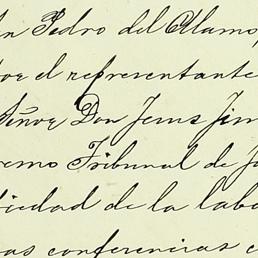 n Pedro del Alamo,
por el representante
Señor Don Jesus Jim
remo Tribunal de J
piedad de la labo
nas conferencias c